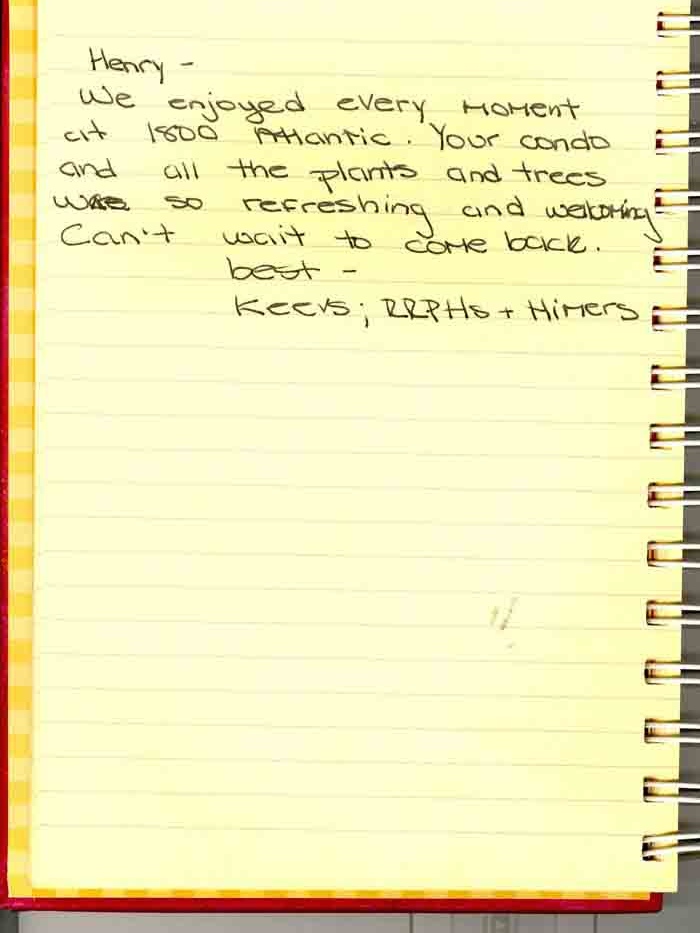 Henry -
We enjoyed every moment
at 1800 Atlantic. Your condo
and all the plants and trees
were so refreshing and welcoming
Can't wait to come back.
best -
Keevs; RRPHs + Himers